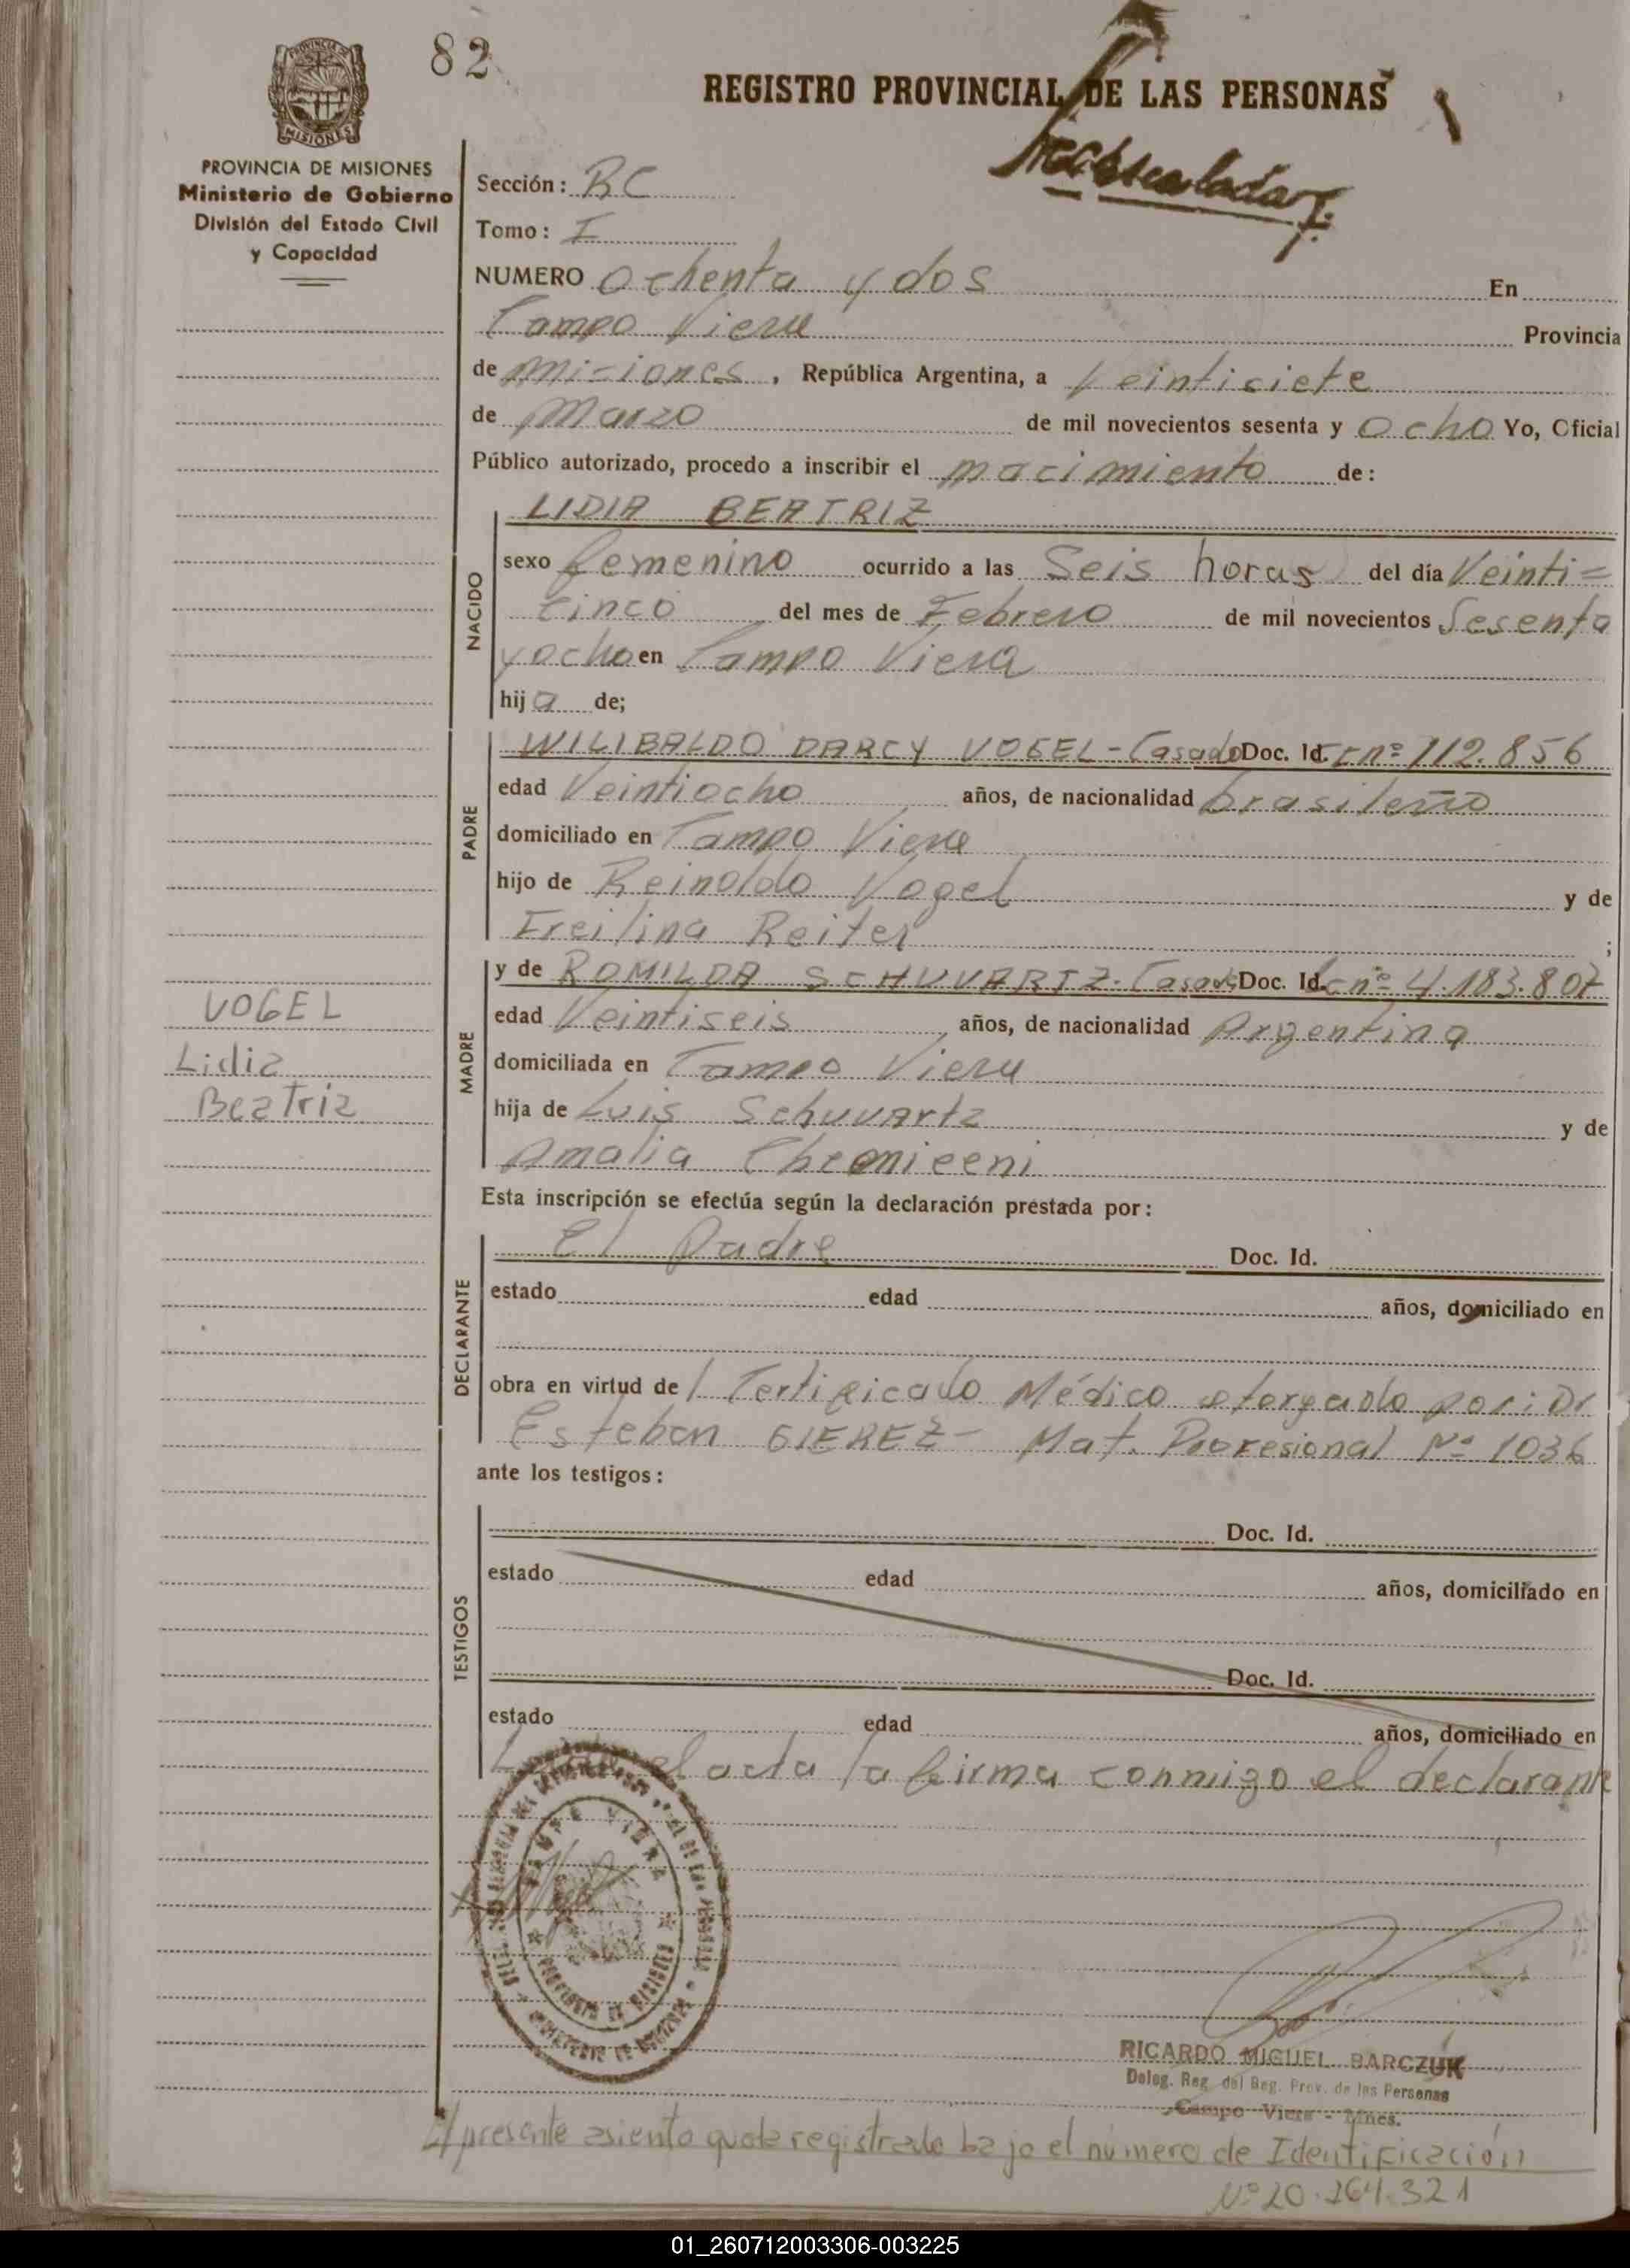 82
REGISTRO PROVINCIAL DE LAS PERSONAS
PROVINCIA DE MISIONES
Ministerio de Gobierno
División del Estado Civil
y Capacidad
Sección: RC
Tomo: I
NUMERO Ochenta y dos En
Campo Viera Provincia
de Misiones, República Argentina, a Veintisiete
de Marzo de mil novecientos sesenta y Ocho Yo, Oficial
Público autorizado, procedo a inscribir el nacimiento de:
LIDIA BEATRIZ
NACIDO
sexo femenino ocurrido a las Seis horas del día Veinti=
cinco del mes de Febrero de mil novecientos Sesenta
y ocho en Campo Viera
hija de;
PADRE
WILIBALDO DARCY VOGEL - Casado Doc. Id. nº 112.856
edad Veintiocho años, de nacionalidad brasileño
domiciliado en Campo Viera
hijo de Reinoldo Vogel y de
Freilina Reiter ;
MADRE
y de ROMILDA SCHUVARTZ - Casada Doc. Id. Lc nº 4.183.807
edad Veintiseis años, de nacionalidad Argentina
domiciliada en Campo Viera
hija de Luis Schuvartz y de
Amalia
VOGEL
Lidia
Beatriz
Esta inscripción se efectúa según la declaración prestada por:
DECLARANTE
El Padre Doc. Id.
estado edad años, domiciliado en
obra en virtud de l Certificado Médico otorgado por: Dr
Esteban GIEREZ - Mat. Profesional Nº 1036
ante los testigos:
TESTIGOS
Doc. Id.
estado edad años, domiciliado en
Doc. Id.
estado edad años, domiciliado en
el acta la firma conmigo el declarante
CAMPO VIERA
PROVINCIA DE MISIONES
RICARDO MIGUEL BARCZUK
Deleg. Reg. del Reg. Prov. de las Personas
Campo Viera - Mnes.
El presente asiento queda registrado bajo el número de Identificación
Nº 20.264.321
01_260712003306-003225